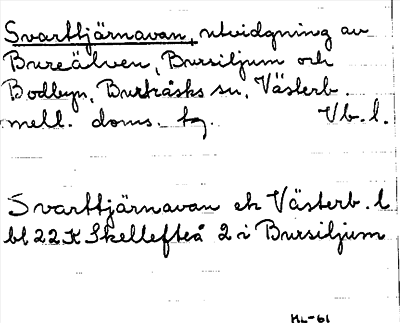 Svarttjärnavan, utvidgning av
Bureälven, Bursiljum och
Bodbyn, Burträsks sn, Västerb.
mell. doms. tg. Vb. l.
Svarttjärnavan ek Västerb. l
bl 22 K Skellefteå 2 i Bursiljum
KL-61